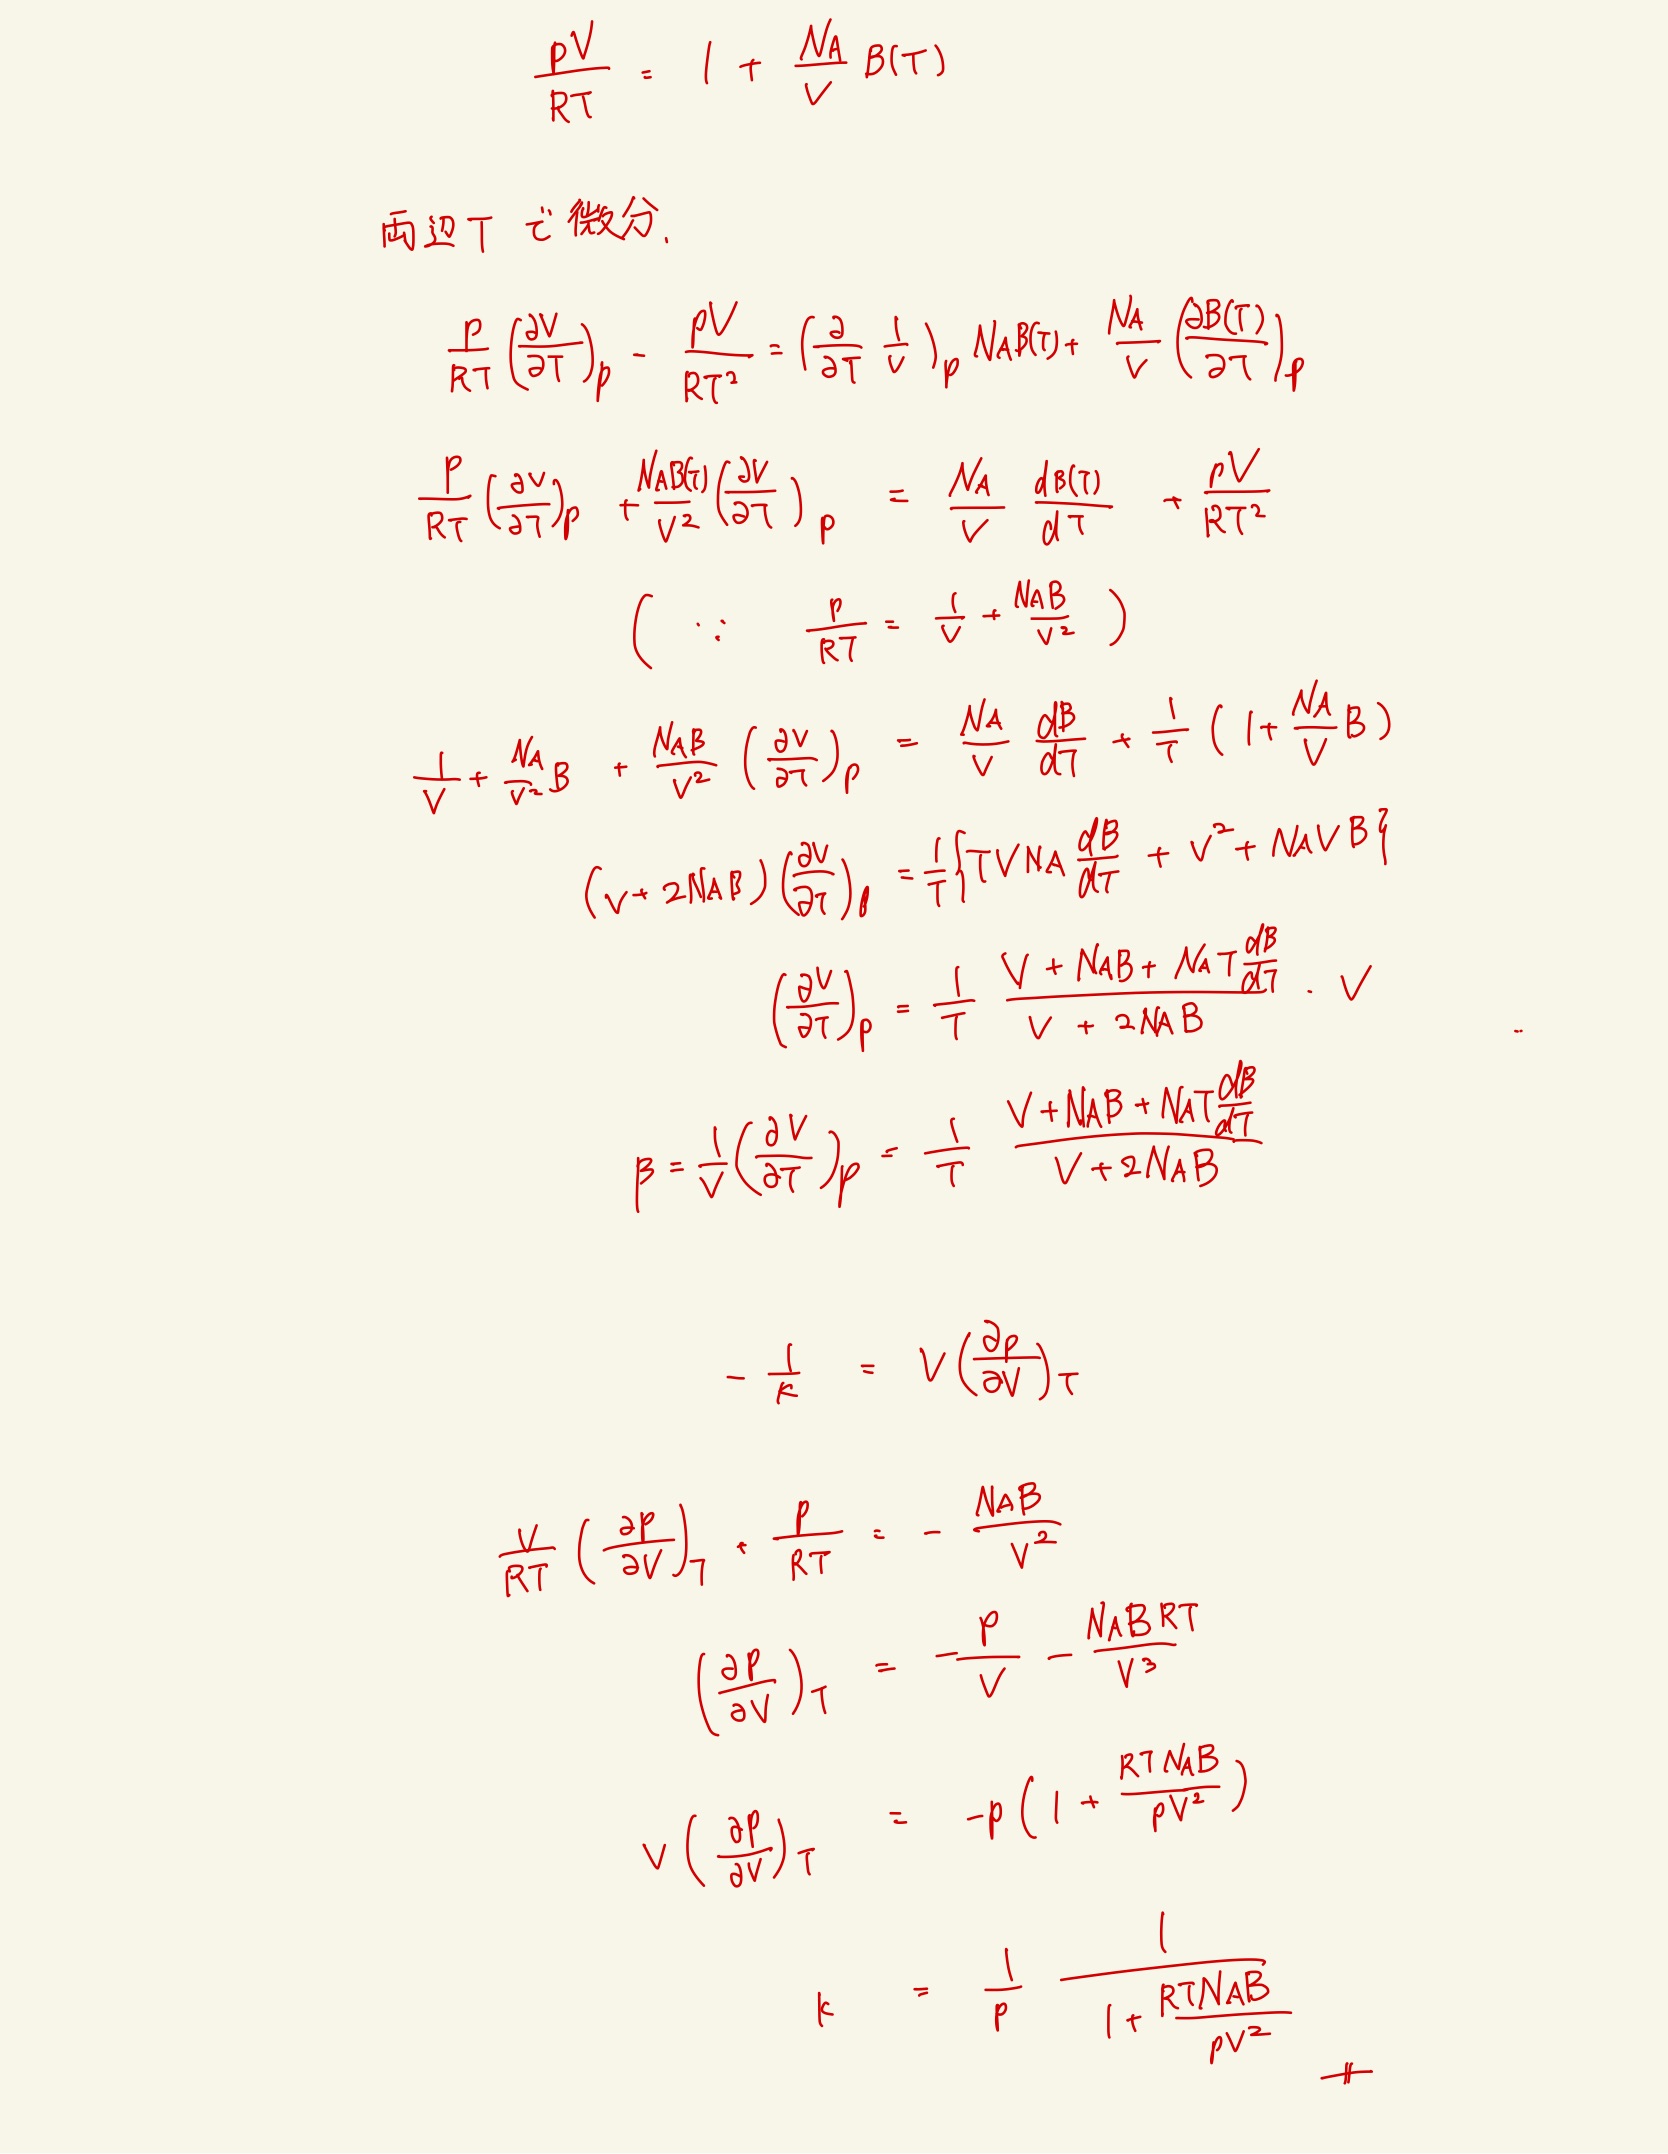 pV/RT = 1 + NA/V B(T)
両辺T で微分.
P/RT (∂V/∂T)p - pV/RT² = (∂/∂T 1/V)p NAB(T) + NA/V (∂B(T)/∂T)p
P/RT (∂V/∂T)p + NAB(T)/V² (∂V/∂T)p = NA/V dB(T)/dT + pV/RT²
( ∵ P/RT = 1/V + NAB/V² )
1/V + NA/V² B + NAB/V² (∂V/∂T)p = NA/V dB/dT + 1/T ( 1 + NA/V B )
(V + 2NAB) (∂V/∂T)p = 1/T { TVNA dB/dT + V² + NAVB }
(∂V/∂T)p = 1/T (V + NAB + NAT dB/dT)/(V + 2NAB) · V
β = 1/V (∂V/∂T)p = 1/T (V + NAB + NAT dB/dT)/(V + 2NAB)
- 1/k = V (∂p/∂V)T
V/RT (∂P/∂V)T + P/RT = - NAB/V²
(∂P/∂V)T = - P/V - NABRT/V³
V (∂P/∂V)T = -p ( 1 + RTNAB/pV² )
k = 1/p 1/(1 + RTNAB/pV²)